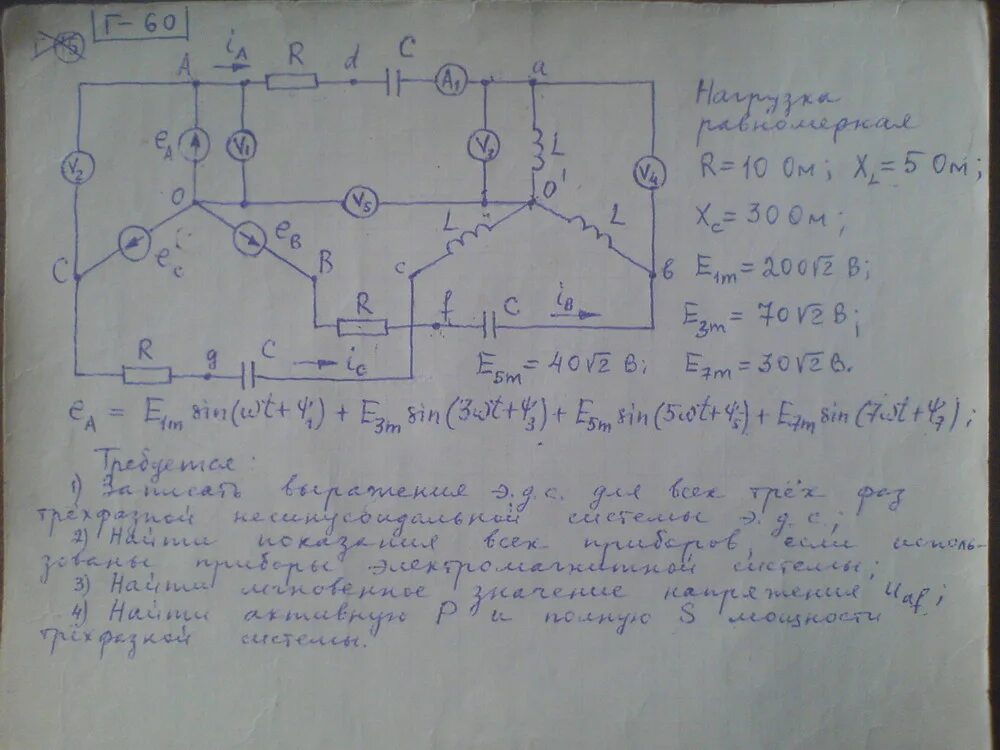 Г-60
A
iA
R
d
C
A1
a
V2
eA
V1
V3
L
V4
O
V5
O'
L
L
C
eC
eB
B
c
в
R
f
C
iB
R
g
C
iC
Нагрузка
равномерная
R = 10 Ом; XL = 5 Ом;
XC = 30 Ом;
E1m = 200√2 В;
E3m = 70√2 В;
E5m = 40√2 В; E7m = 30√2 В.
eA = E1m sin(ωt+Ψ1) + E3m sin(3ωt+Ψ3) + E5m sin(5ωt+Ψ5) + E7m sin(7ωt+Ψ7);
Требуется:
1) Записать выражения э.д.с. для всех трёх фаз
трёхфазной несинусоидальной системы э.д.с.;
2) Найти показания всех приборов, если исполь-
зованы приборы электромагнитной системы;
3) Найти мгновенное значение напряжения uaf;
4) Найти активную P и полную S мощности
трёхфазной системы.